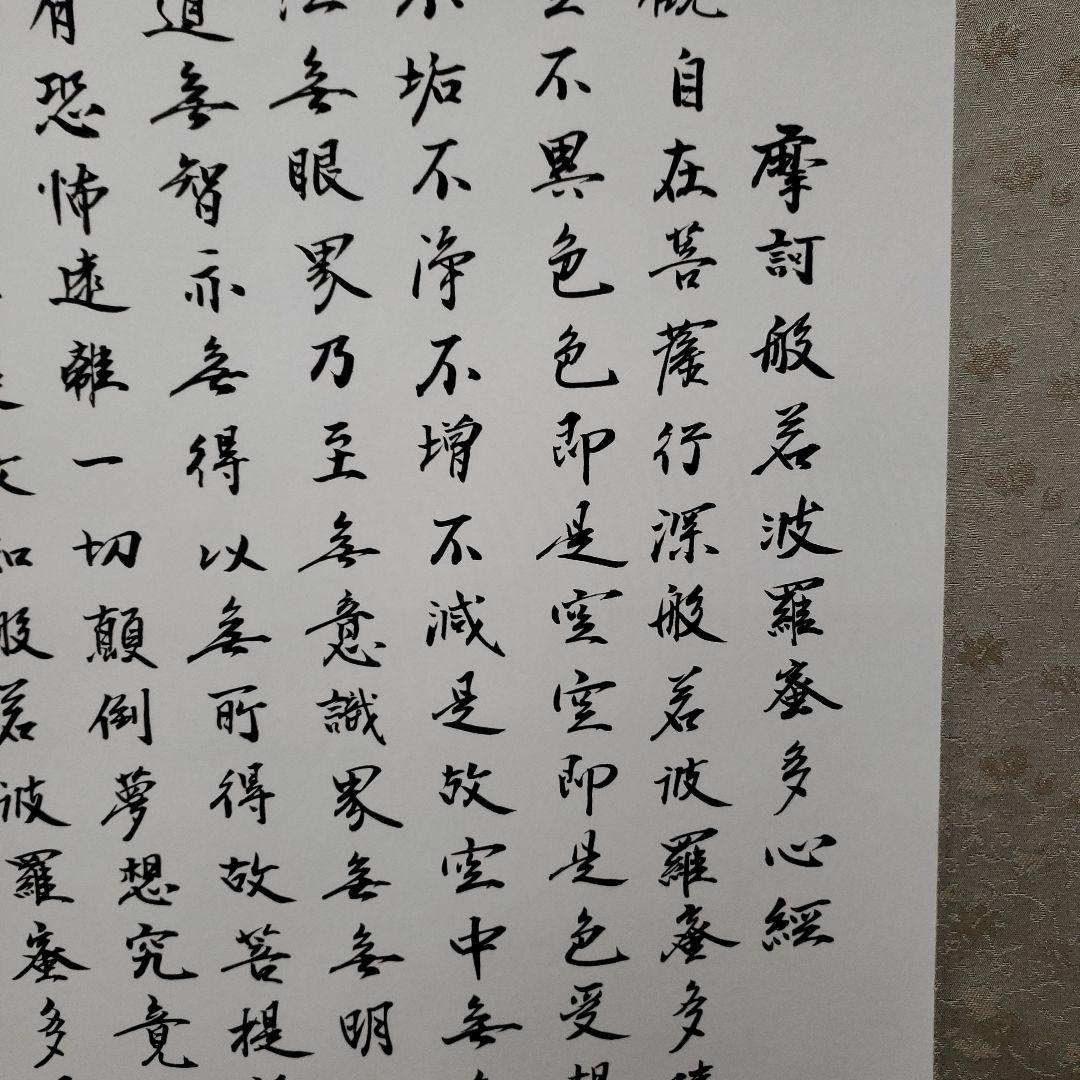 摩訶般若波羅蜜多心經
自在菩薩行深般若波羅蜜多
不異色色即是空空即是色受想
垢不淨不增不減是故空中無
無眼界乃至無意識界無無明
道無智亦無得以無所得故菩提
有恐怖遠離一切顛倒夢想究竟
般若波羅蜜多